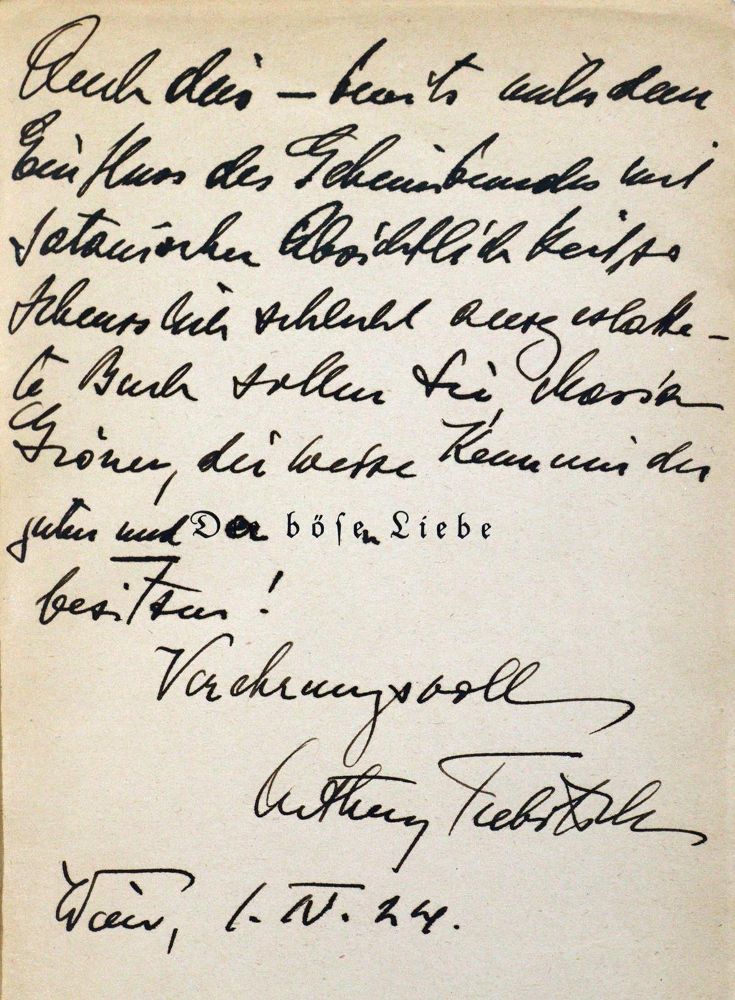 Auch dies — bereits unter dem
Einfluss des Geheimbundes mit
satanischer Absichtlichkeit so
scheusslich schlecht ausgestatte-
te Buch sollen Sie, Maria
Gröner, die weise Kennerin der
guten und Der bösen Liebe
besitzen!
Verehrungsvoll
Arthur Trebitsch
Wien, 1. IV. 24.